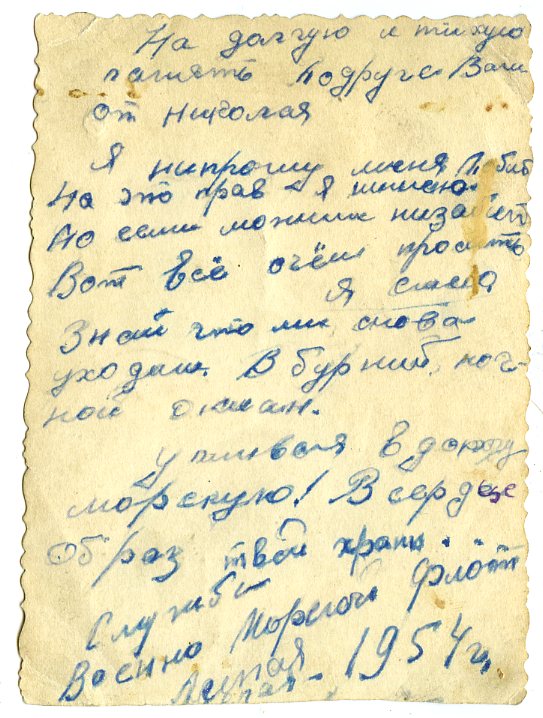 На долгую и тихую
память Подруге Вали
от Николая
Я нипрошу меня Любит
На это прав Я ниимею
Но если можиш низабыт
Вот всё очём просить
Я смею
Знай что ми снова
уходим. В бурний, ноч-
ной океан.
в
морскую! В сердце
Образ твой храни...
Служба
Военно Морской флот
1954 г.